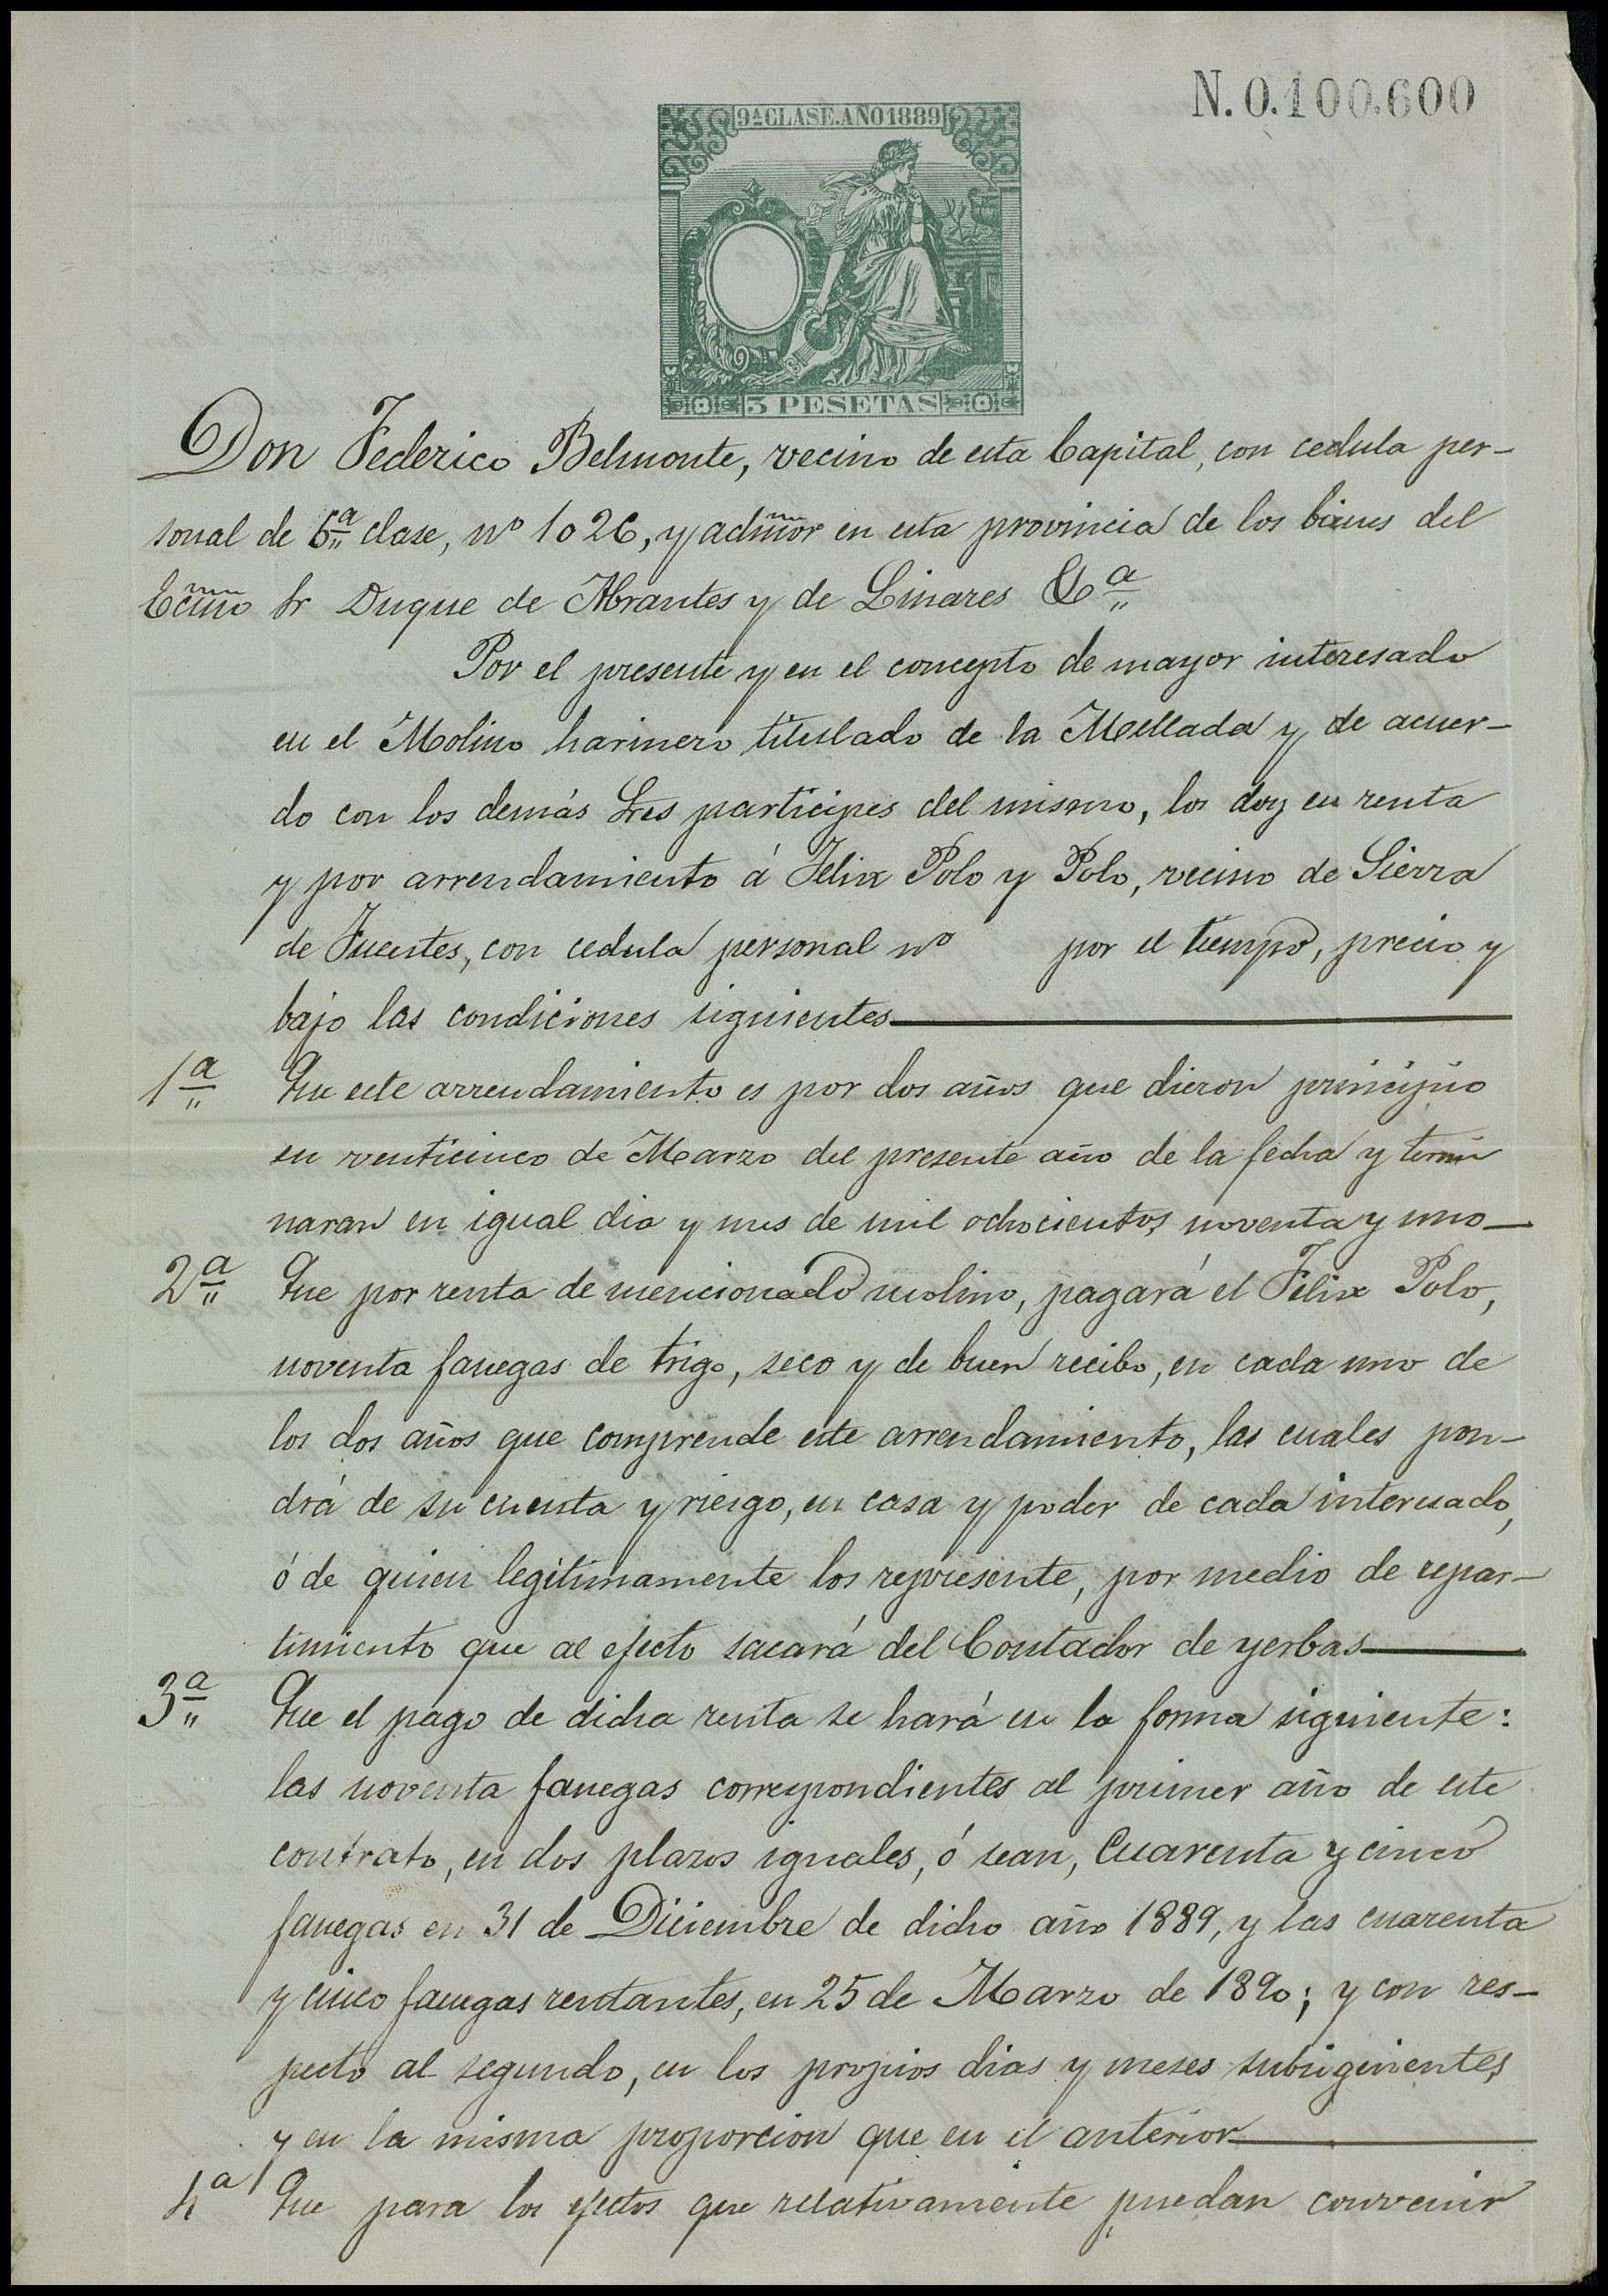 N. 0.100.600
9ª CLASE. AÑO 1889
3 PESETAS
Don Federico Belmonte, vecino de esta Capital, con cedula per-
sonal de 6ª clase, nº 1026, y admor en esta provincia de los bienes del
Ecmo Sr Duque de Abrantes y de Linares &ª
Por el presente y en el concepto de mayor interesado
en el Molino harinero titulado de la Mellada y de acuer-
do con los demás Sres participes del mismo, los doy en renta
y por arrendamiento á Felix Polo y Polo, vecino de Sierra
de Fuentes, con cedula personal nº por el tiempo, precio y
bajo las condiciones siguientes
1ª Que este arrendamiento es por dos años que dieron principio
en venticinco de Marzo del presente año de la fecha y termi
naran en igual dia y mes de mil ochocientos noventa y uno
2ª Que por renta de mencionado molino, pagará el Felix Polo,
noventa fanegas de trigo, seco y de buen recibo, en cada uno de
los dos años que comprende este arrendamiento, las cuales pon-
drá de su cuenta y riesgo, en casa y poder de cada interesado,
ó de quien legitimamente los represente, por medio de repar-
timiento que al efecto sacará del Contador de yerbas
3ª Que el pago de dicha renta se hará en la forma siguiente:
las noventa fanegas correspondientes al primer año de este
contrato, en dos plazos iguales, ó sean, Cuarenta y cinco
fanegas en 31 de Diciembre de dicho año 1889, y las cuarenta
y cinco fanegas restantes, en 25 de Marzo de 1890; y con res-
pecto al segundo, en los propios dias y meses subsiguientes,
y en la misma proporcion que en el anterior
4ª Que para los efectos que relativamente puedan convenir